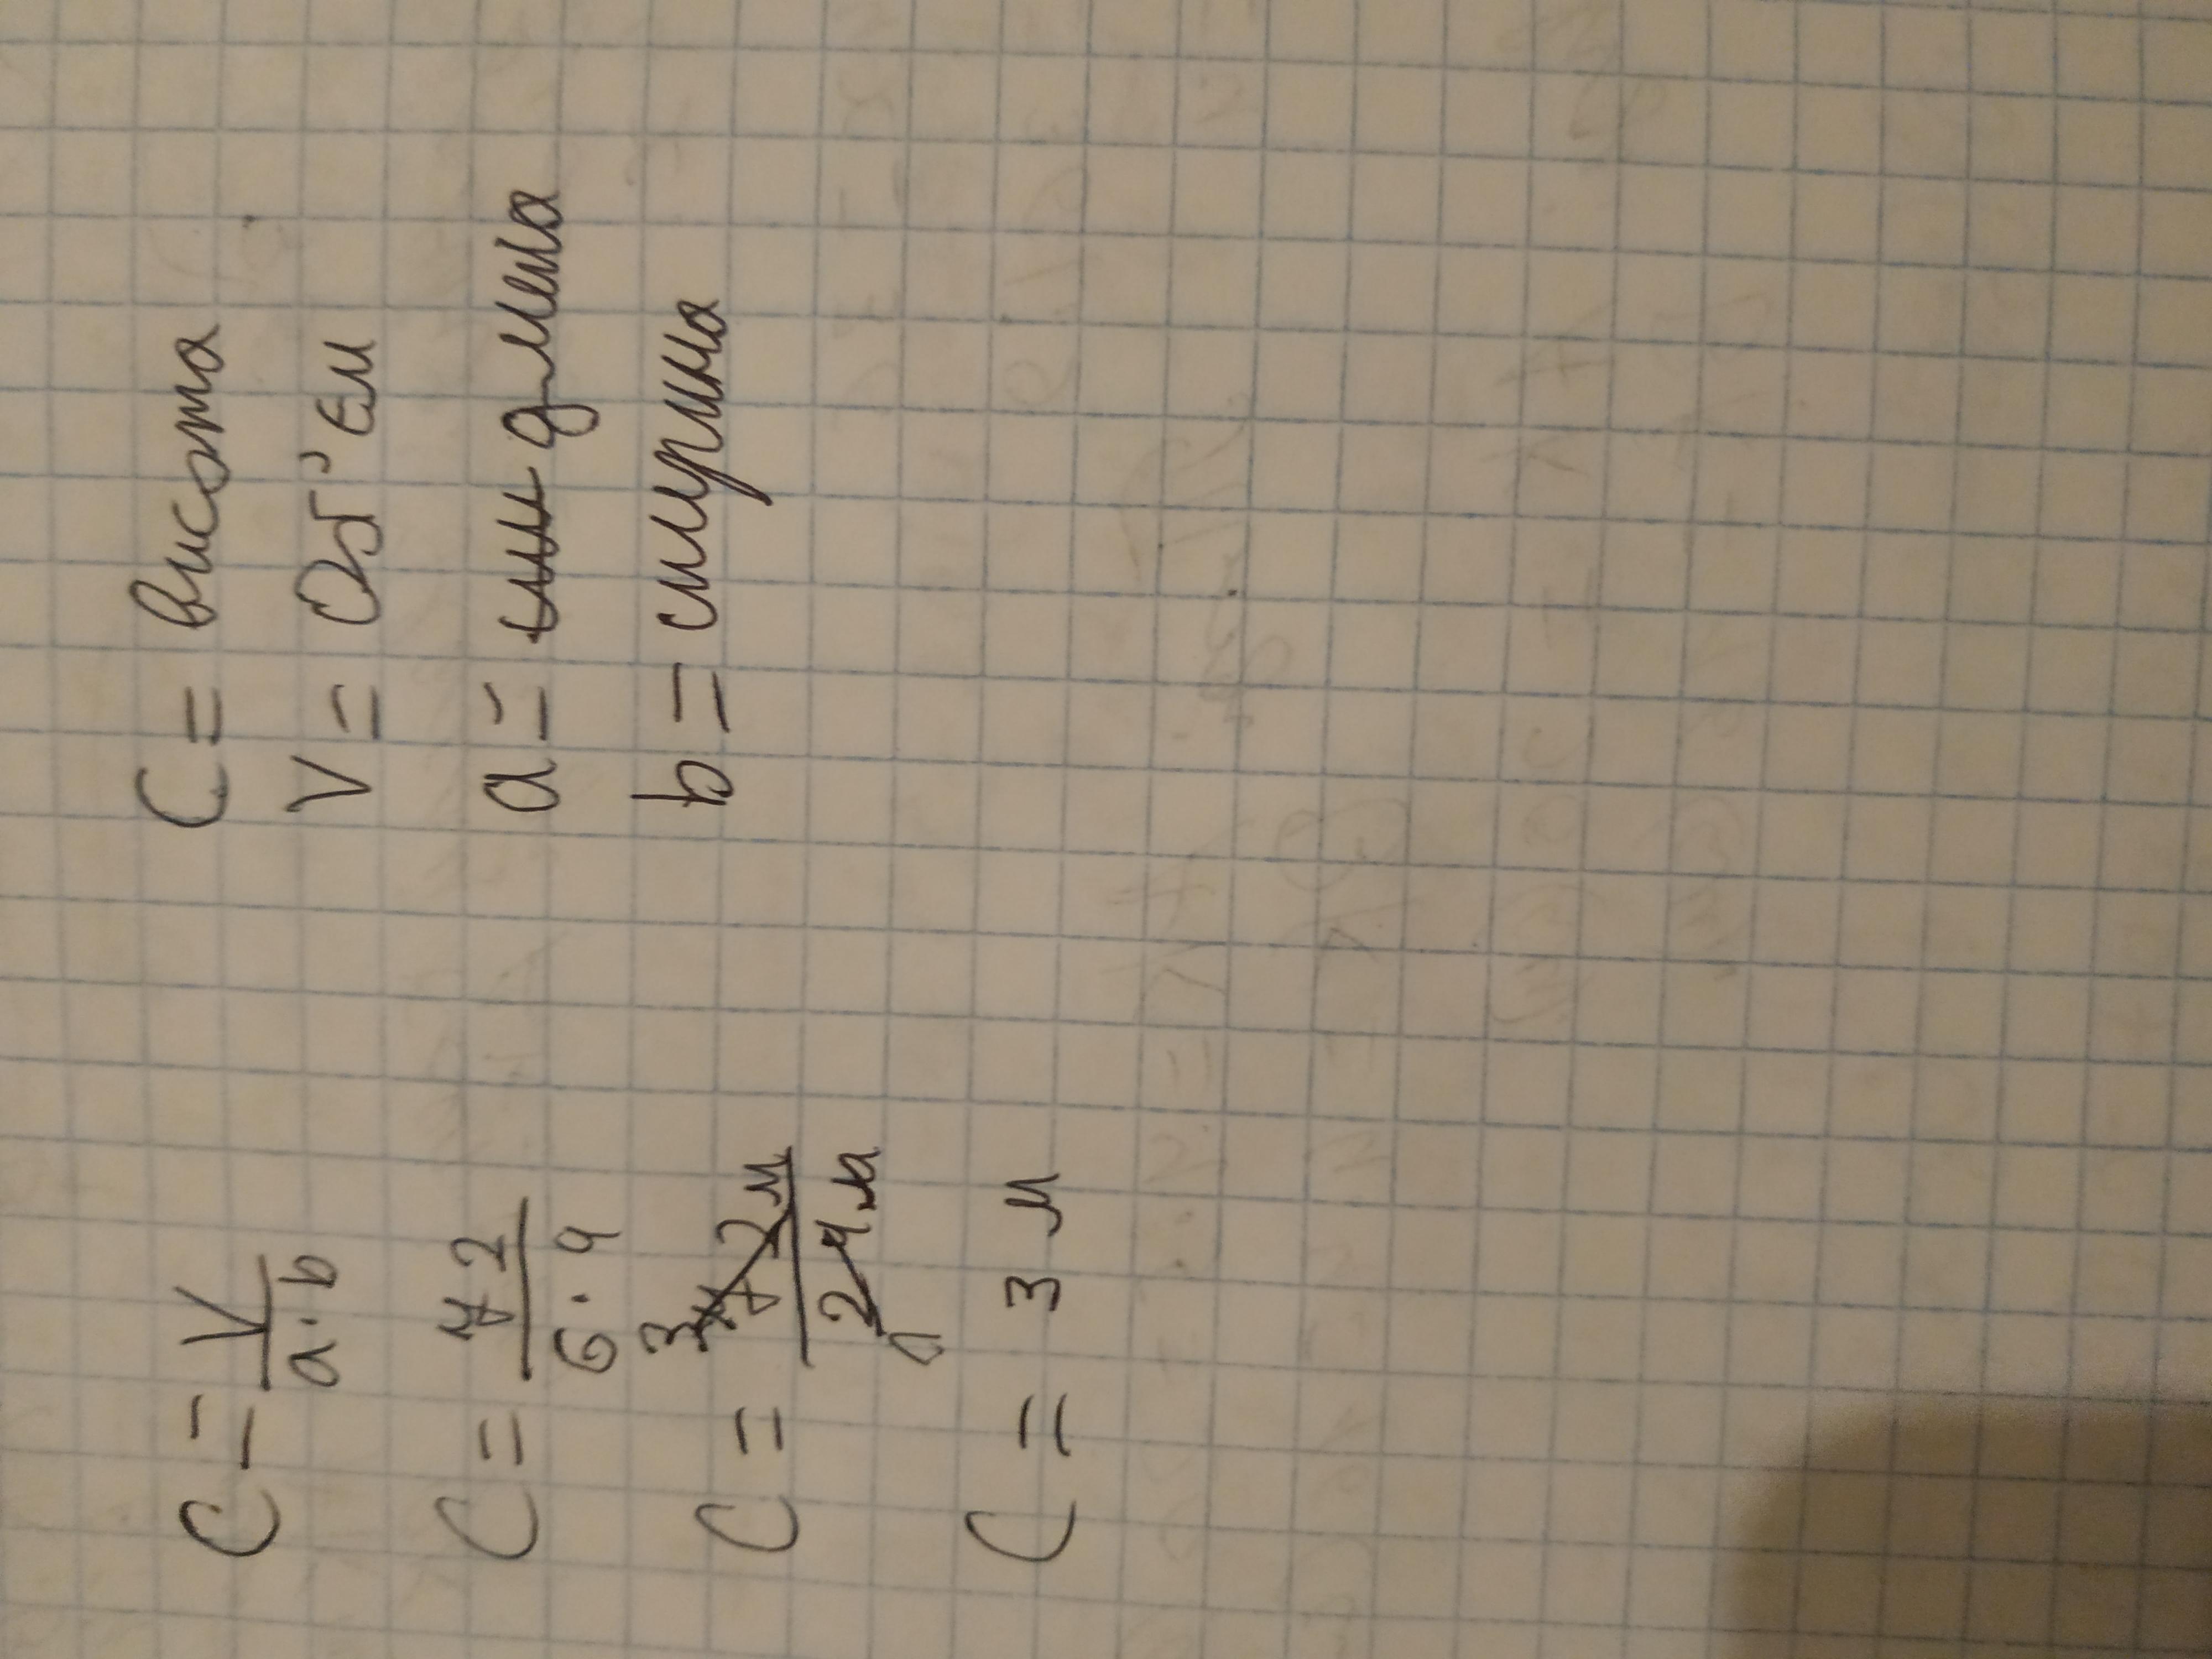 C = V/a·b
C = 72/6·4
C = 72м/24м 3
C = 3 м
C = висота
V = Об'єм
a = длина
b = ширина